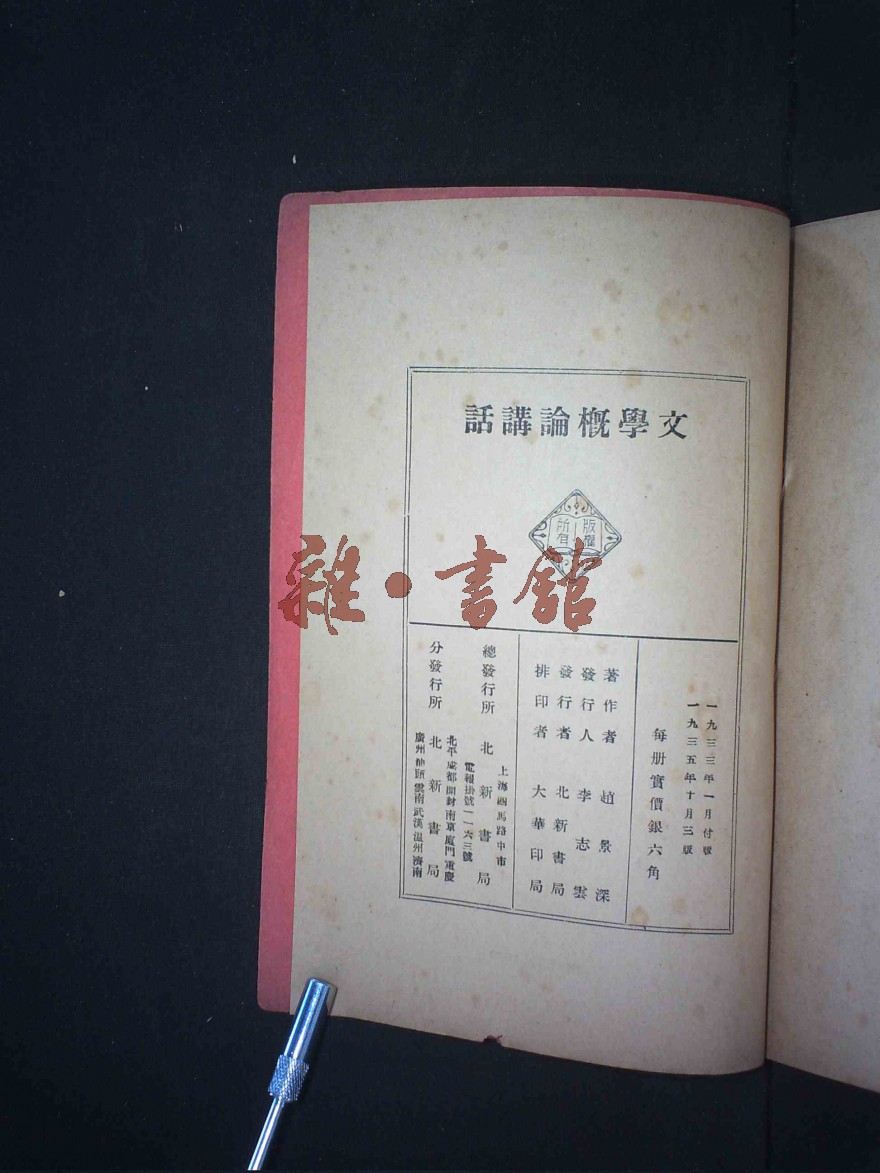 文學概論講話
版權
所有
一九三三年一月付版
一九三五年十月三版
每册實價銀六角
著作者 趙景深
發行人 李志雲
發行者 北新書局
排印者 大華印局
總發行所 北新書局
上海四馬路中市
電報掛號一一六三號
分發行所 北新書局
北平成都開封南京廈門重慶
廣州汕頭雲南武漢溫州濟南
雜·書館